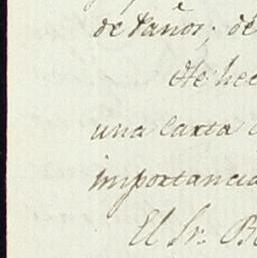 de Paños; de
He hec
una carta
importancia
El Sr. B